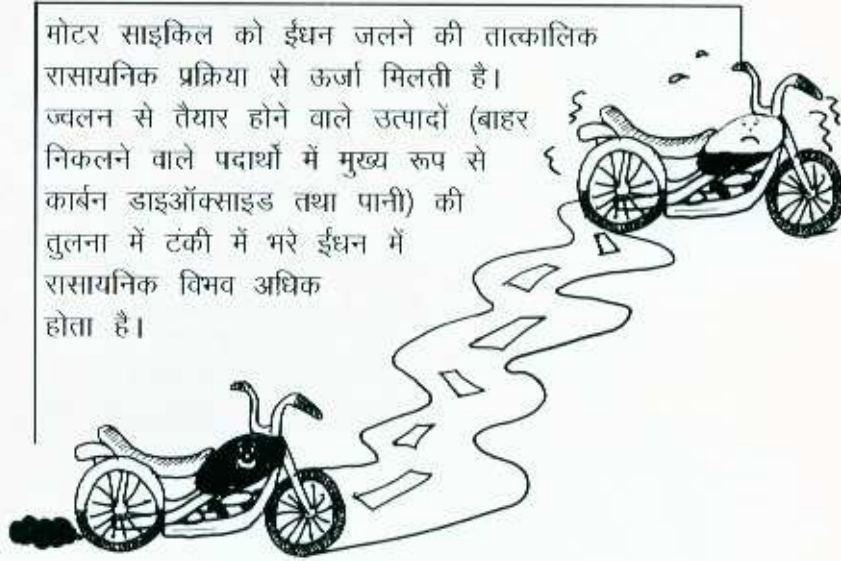 मोटर साइकिल को ईंधन जलने की तात्कालिक
रासायनिक प्रक्रिया से ऊर्जा मिलती है।
ज्वलन से तैयार होने वाले उत्पादों (बाहर
निकलने वाले पदार्थों में मुख्य रूप से
कार्बन डाइऑक्साइड तथा पानी) की
तुलना में टंकी में भरे ईंधन में
रासायनिक विभव अधिक
होता है।